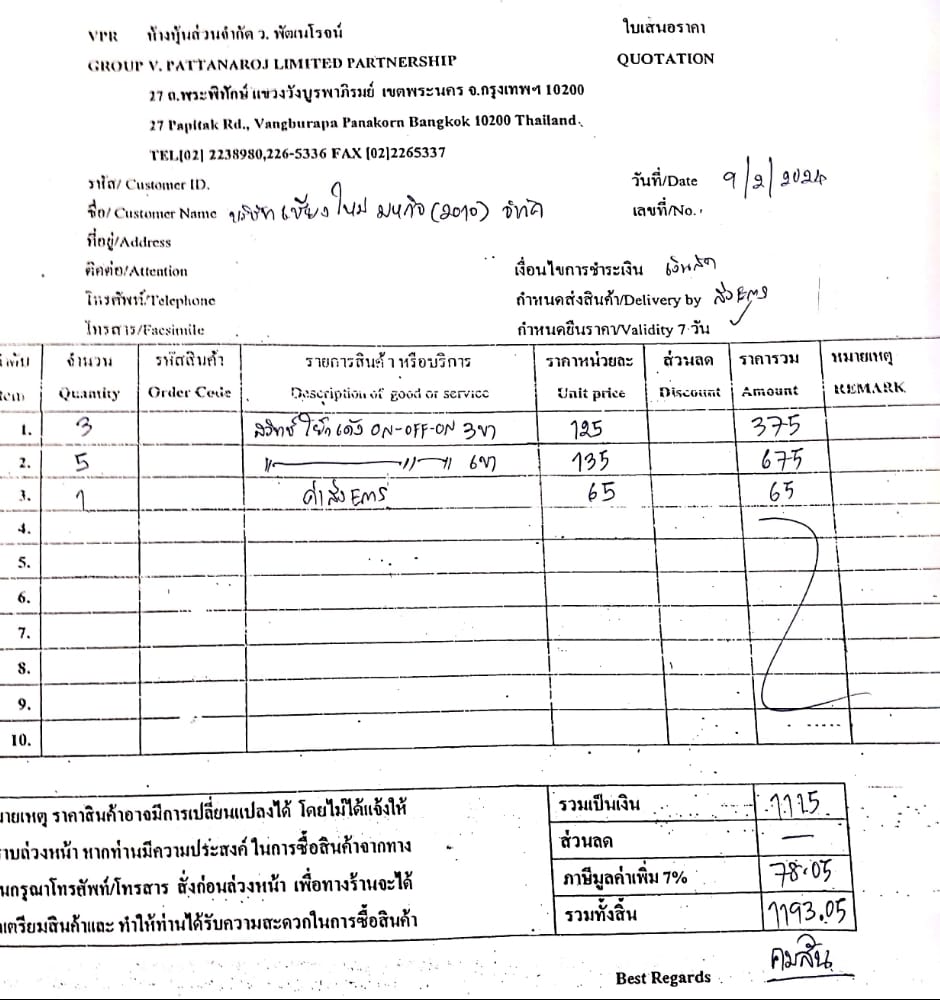 VPR ห้างหุ้นส่วนจำกัด ว. พัฒนโรจน์ ใบเสนอราคา
GROUP V. PATTANAROJ LIMITED PARTNERSHIP QUOTATION
27 ถ.พระพิทักษ์ แขวงวังบูรพาภิรมย์ เขตพระนคร จ.กรุงเทพฯ 10200
27 Papitak Rd., Vangburapa Panakorn Bangkok 10200 Thailand.
TEL[02] 2238980,226-5336 FAX [02]2265337
รหัส/ Customer ID. วันที่/Date 9/2/2024
ชื่อ/ Customer Name บริษัท เชียงใหม่ มหกิจ (2010) จำกัด เลขที่/No.
ที่อยู่/Address
ติดต่อ/Attention เงื่อนไขการชำระเงิน เงินสด
โทรศัพท์/Telephone กำหนดส่งสินค้า/Delivery by ส่ง EMS
โทรสาร/Facsimile กำหนดยืนราคา/Validity 7 วัน
จำนวน รหัสสินค้า รายการสินค้า หรือบริการ ราคาหน่วยละ ส่วนลด ราคารวม หมายเหตุ
Quantity Order Code Description of good or service Unit price Discount Amount REMARK
1. 3 สวิทซ์ โยก เด้ง ON-OFF-ON 3ขา 125 375
2. 5 〃 〃 〃 6ขา 135 675
3. 1 ค่าส่ง EMS 65 65
4.
5.
6.
7.
8.
9.
10.
ายเหตุ ราคาสินค้าอาจมีการเปลี่ยนแปลงได้ โดยไม่ได้แจ้งให้ รวมเป็นเงิน 1115
าบล่วงหน้า หากท่านมีความประสงค์ ในการซื้อสินค้าจากทาง ส่วนลด —
นกรุณาโทรศัพท์/โทรสาร สั่งก่อนล่วงหน้า เพื่อทางร้านจะได้ ภาษีมูลค่าเพิ่ม 7% 78.05
เตรียมสินค้าและ ทำให้ท่านได้รับความสะดวกในการซื้อสินค้า รวมทั้งสิ้น 1193.05
Best Regards คมสัน